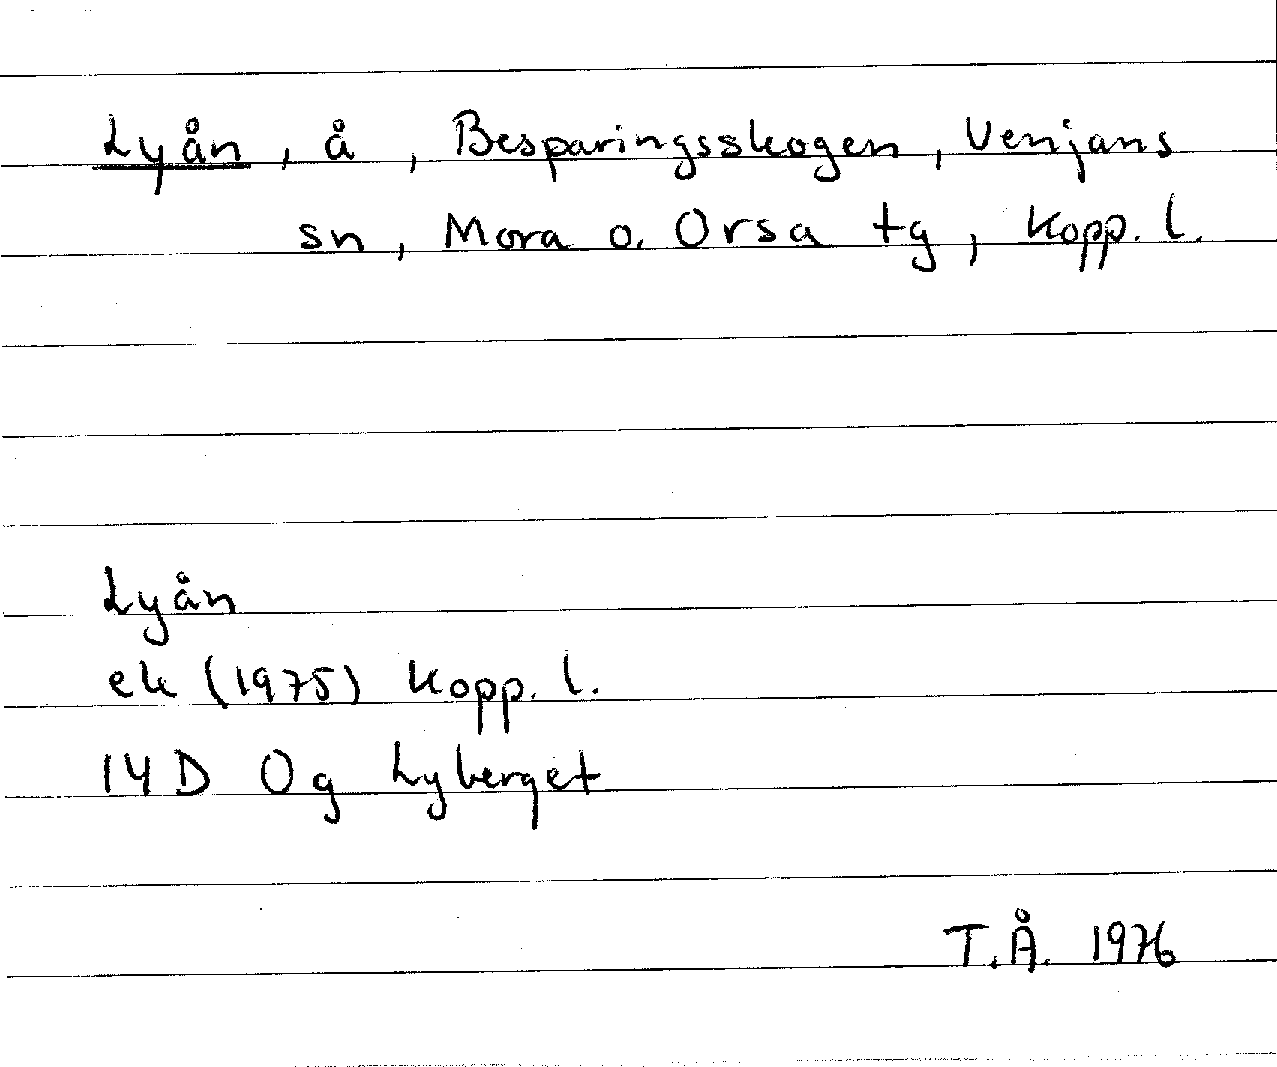 Lyån, å, Besparingsskogen, Venjans
sn, Mora o. Orsa tg, Kopp. l.
Lyån
ek (1975) Kopp. l.
14D 0g Lyberget
T.Å. 1976